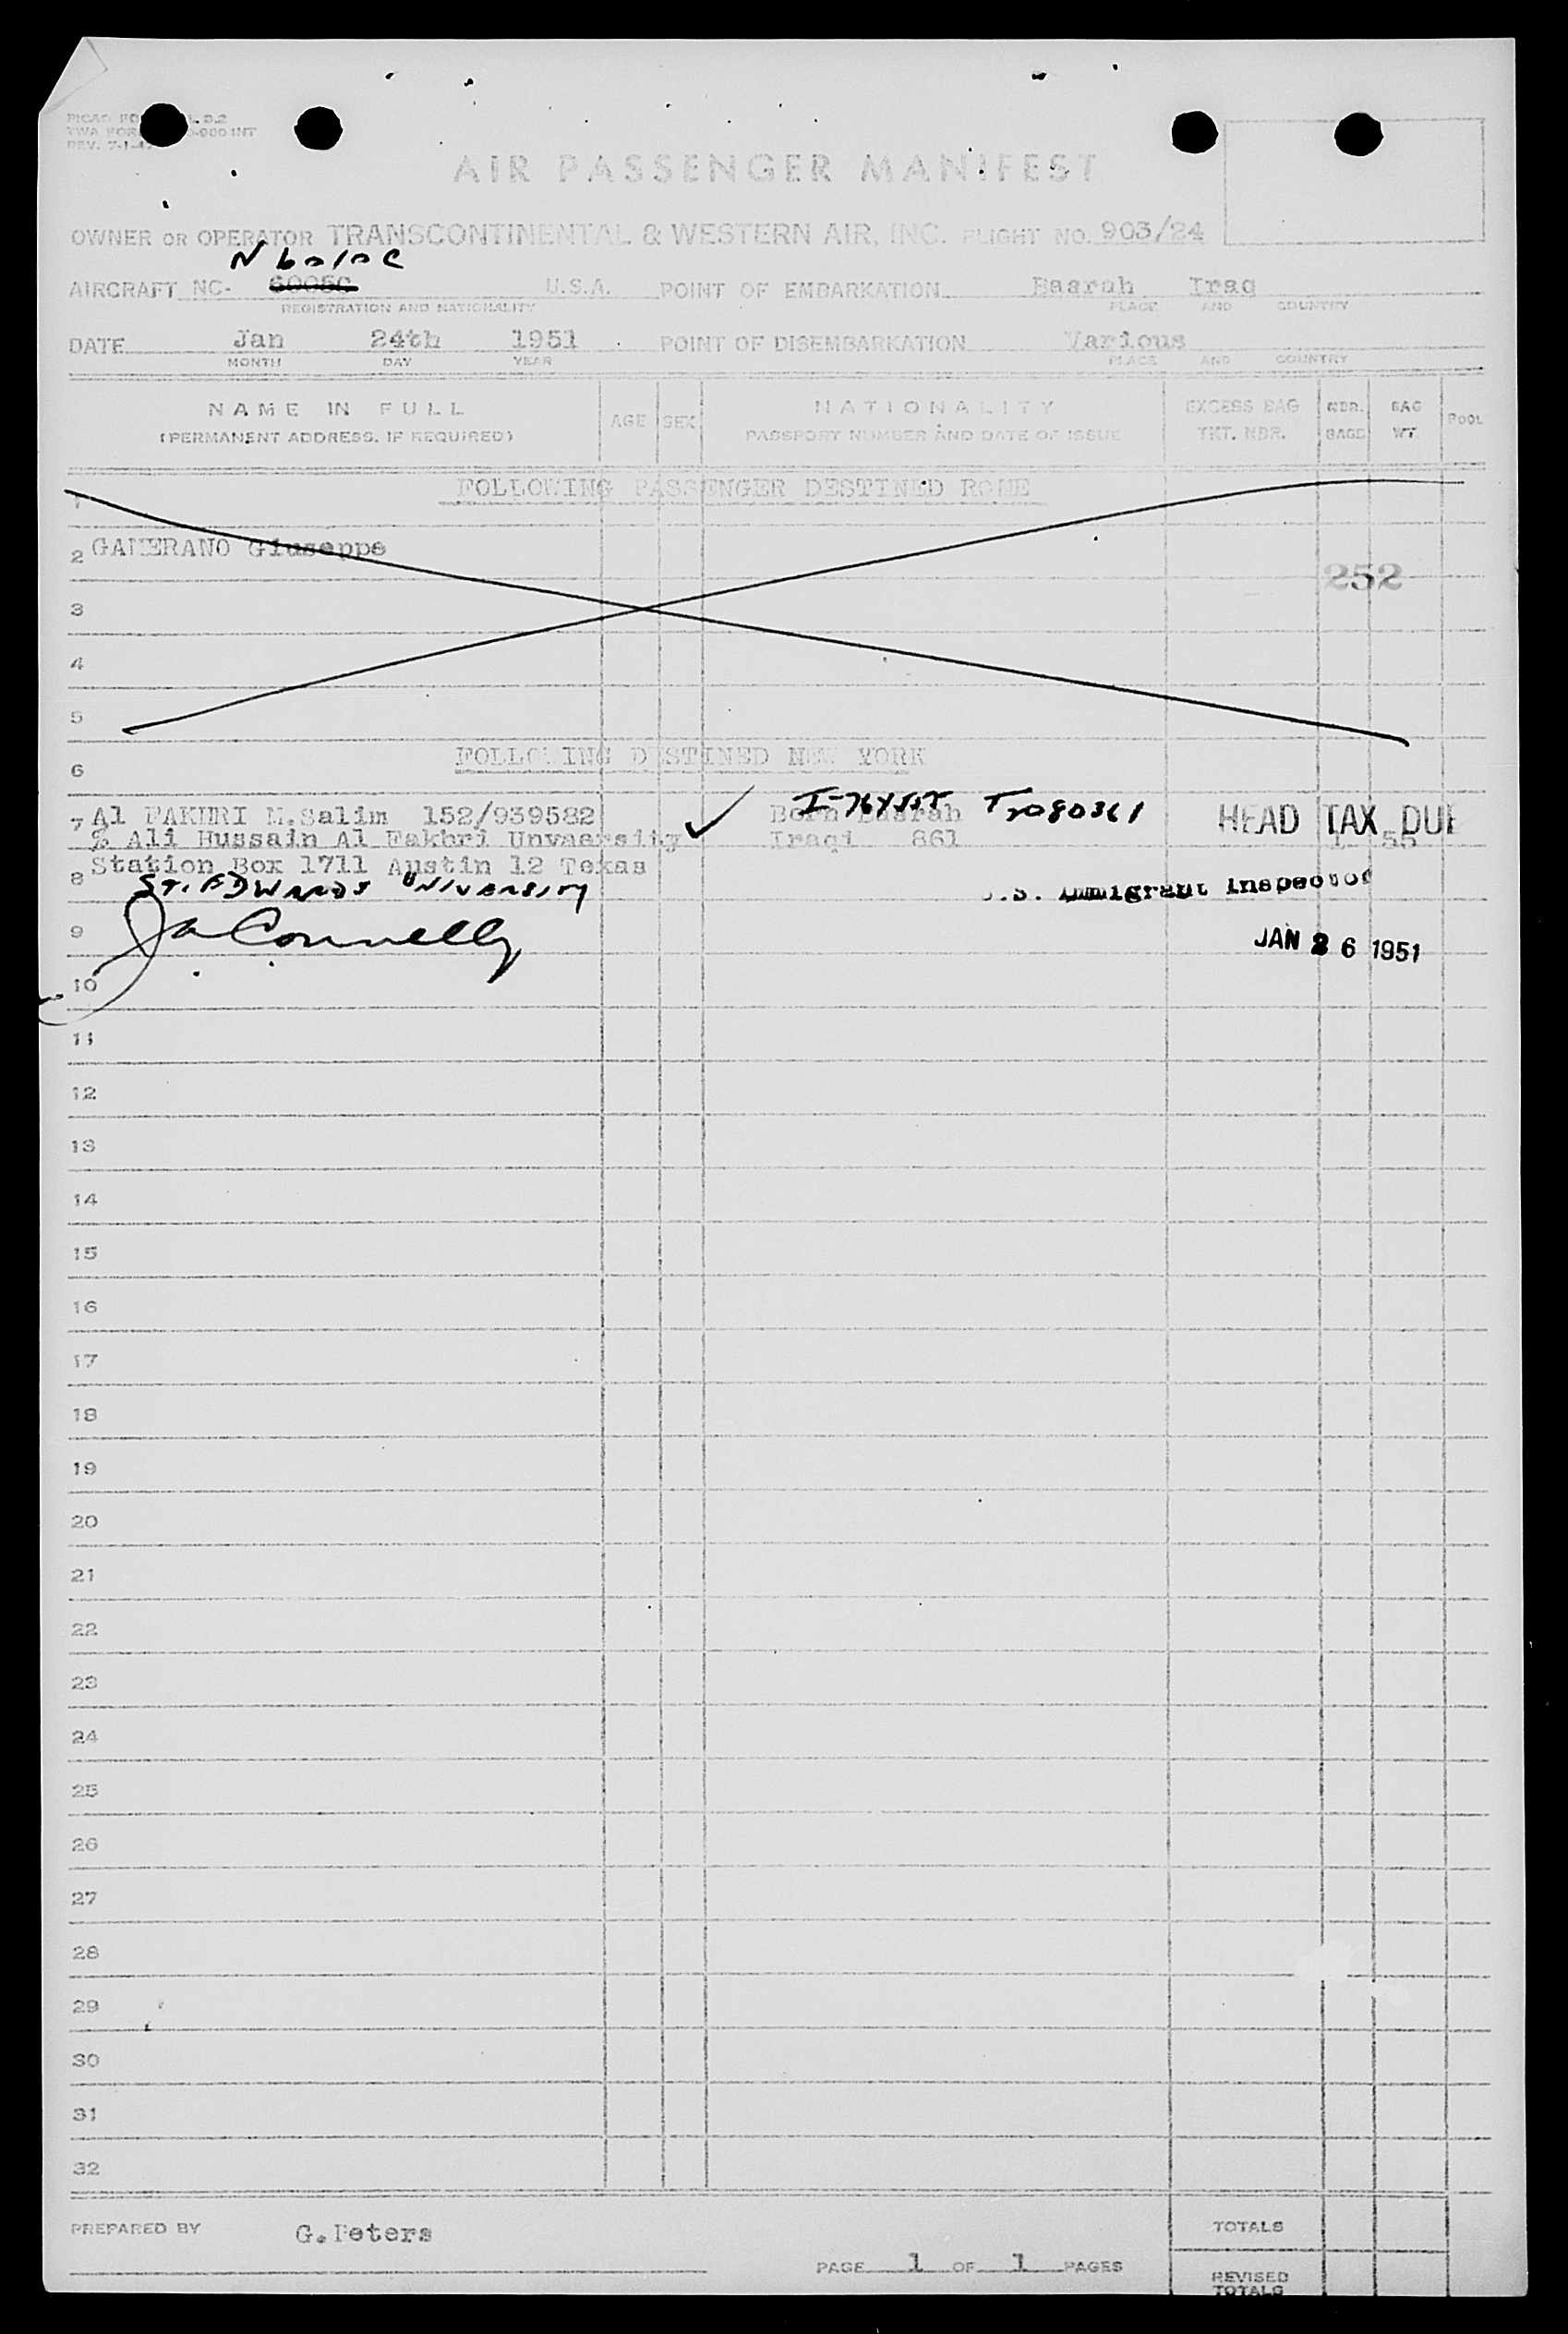 REV. 7-1-4
AIR PASSENGER MANIFEST
OWNER OR OPERATOR TRANSCONTINENTAL & WESTERN AIR, INC. FLIGHT NO. 903/24
N 6010C
AIRCRAFT NC- 6005C U.S.A. POINT OF EMBARKATION Basrah Iraq
REGISTRATION AND NATIONALITY PLACE AND COUNTRY
DATE Jan 24th 1951 POINT OF DISEMBARKATION Various
MONTH DAY YEAR PLACE AND COUNTRY
NAME IN FULL AGE SEX NATIONALITY EXCESS BAG NBR. BAG POOL
(PERMANENT ADDRESS, IF REQUIRED) PASSPORT NUMBER AND DATE OF ISSUE TKT. NBR. BAGG WT
1 FOLLOWING PASSENGER DESTINED ROME
2 GAMERANO Giuseppe
252
3
4
5
6 FOLLOWING DESTINED NEW YORK
7 Al FAKHRI M.Salim 152/939582 Born Basrah HEAD TAX DUE
% Ali Hussain Al Fakhri Unvaersity Iraqi 861 1 55
8 Station Box 1711 Austin 12 Texas
ST. EDWARDS UNIVERSITY .S. Immigrant Inspector
9 Connelly JAN 26 1951
10
11
12
13
14
15
16
17
18
19
20
21
22
23
24
25
26
27
28
29
30
31
32
PREPARED BY G.Peters TOTALS
PAGE 1 OF 1 PAGES
REVISED
TOTALS